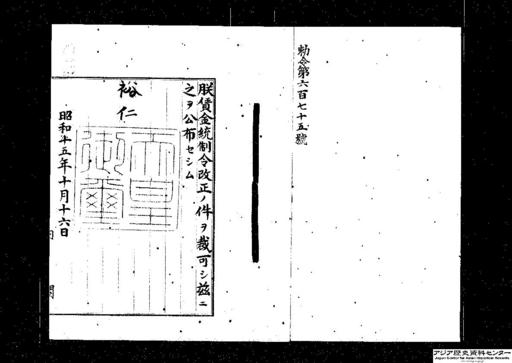 勅令第六百七十五號
朕賃金統制令改正ノ件ヲ裁可シ茲ニ
之ヲ公布セシム
裕仁
天皇御璽
昭和十五年十月十六日
アジア歴史資料センター
Japan Center for Asian Historical Records